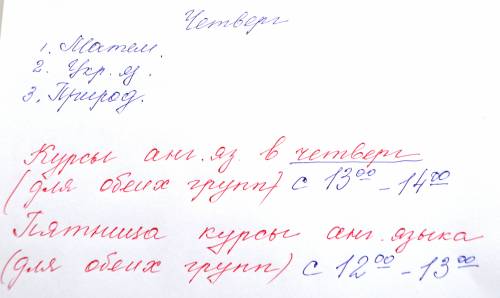 Четверг
1. Матем.
2. Укр. яз.
3. Природ.
Курсы анг. яз. в четверг
(для обеих групп) с 13⁰⁰ - 14⁰⁰
Пятница курсы анг. языка
(для обеих групп) с 12⁰⁰ - 13⁰⁰